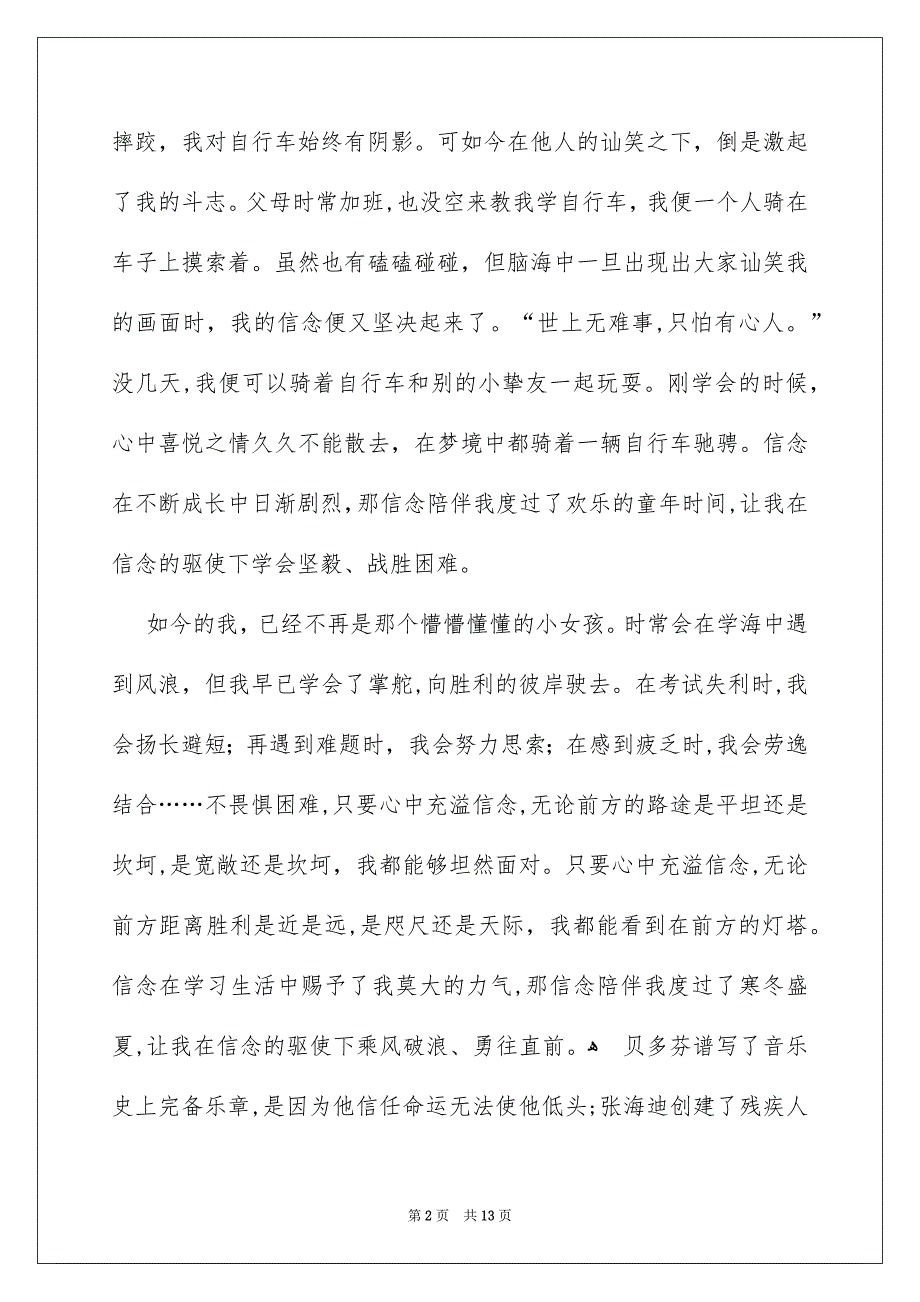 摔跤，我对自行车始终有阴影。可如今在他人的讪笑之下，倒是激起
了我的斗志。父母时常加班,也没空来教我学自行车，我便一个人骑在
车子上摸索着。虽然也有磕磕碰碰，但脑海中一旦出现出大家讪笑我
的画面时，我的信念便又坚决起来了。“世上无难事,只怕有心人。”
没几天,我便可以骑着自行车和别的小挚友一起玩耍。刚学会的时候,
心中喜悦之情久久不能散去，在梦境中都骑着一辆自行车驰骋。信念
在不断成长中日渐剧烈,那信念陪伴我度过了欢乐的童年时间,让我在
信念的驱使下学会坚毅、战胜困难。
如今的我，已经不再是那个懵懵懂懂的小女孩。时常会在学海中遇
到风浪，但我早已学会了掌舵,向胜利的彼岸驶去。在考试失利时,我
会扬长避短；再遇到难题时，我会努力思索；在感到疲乏时,我会劳逸
结合……不畏惧困难,只要心中充溢信念,无论前方的路途是平坦还是
坎坷,是宽敞还是坎坷，我都能够坦然面对。只要心中充溢信念,无论
前方距离胜利是近是远,是咫尺还是天际，我都能看到在前方的灯塔。
信念在学习生活中赐予了我莫大的力气,那信念陪伴我度过了寒冬盛
夏,让我在信念的驱使下乘风破浪、勇往直前。ﻫ 贝多芬谱写了音乐
史上完备乐章,是因为他信任命运无法使他低头;张海迪创建了残疾人
第 2 页 共 13 页